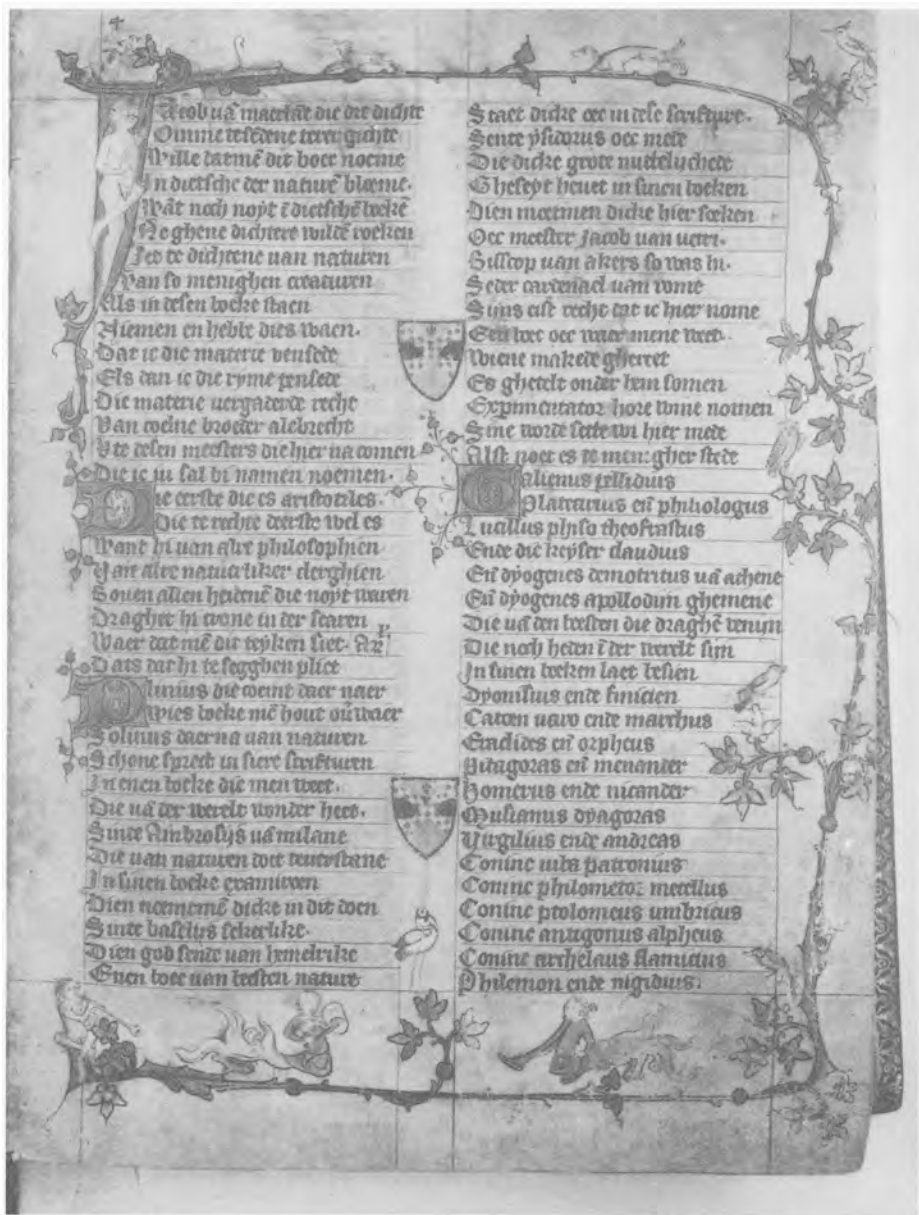 Jacob uā maerlāt die dit dichte
Omme te sēdene teere gichte
Wille datmē dit boec noeme
In dietsche der naturē bloeme.
Wāt noch noyt ī dietschē boekē
Ne ghene dichtere wildē roeken
Iet te dichtene uan naturen
Van so menighen creaturen
Als in desen boeke staen
Niemen en hebbe dies waen.
Dat ic die materie vensede
Els dan ic die ryme pensede
Die materie uergaderde recht
Van coelne broeder alebrecht
Vte desen meesters die hier na comen
Die ic iu sal bi namen noemen.
Die eerste die es aristotiles.
Die te rechte deerste wel es
Want hi uan alre philosophien
Van alre natuerliker clerghien
Bouen allen heidenē die noyt waren
Draghet hi crone in der scaren
Waer dat mē dit teyken siet. Ar
Dats dat hi te segghen pliet
Plinius die coemt daer naer
Wies boeke mē hout ou̅ waer
Solinus daerna uan naturen
Schone sprect in siere scrifturen
In enen boeke die men weet.
Die uā der werelt wonder heet.
Sinte Ambrosijs uā milane
Die uan naturen doet teuerstane
In sinen boeke examiroen
Dien neememē dicke in dit doen
Sinte baselijs sekerlike.
Dien god sende uan hemelrike
Enen boec uan beesten nature
Staet dicke oec in dese scrifture.
Sente ysidorus oec mede
Die dicke grote nuttelychede
Gheseyt heuet in sinen boeken
Dien moetmen dicke hier soeken
Oec meester Jacob uan uetri.
Bisscop uan akers so was hi.
Seder cardenael uan rome
Sijns eist recht dat ic hier nome
Een boec oec waer mene weet.
Wiene makede ghereet
Es ghetelt onder hem somen
Expimentator hore wine nomen
Sine worde sette wi hier mede
Alst noet es te menigher stede
Galienus pelludius
Platearius eñ phihologus
Lucillus phiso theofrastus
Ende die keyser claudius
Eñ dyogenes demotritus uā athene
Eñ dyogenes apollodun ghemene
Die uā den beesten die draghē venun
Die noch heden ī der werelt sijn
In sinen boeken laet besien
Dyonisius ende finicien
Catoen uaro ende marchus
Eradides eñ orpheus
Pitagoras eñ menander
Homerus ende nicander
Musianus dyagoras
Virgilius ende andreas
Coninc iuba patronius
Coninc philometor metellus
Coninc ptolomeus umbricus
Coninc antigonus alpheus
Coninc archelaus flamicius
Philemon ende nigidius.